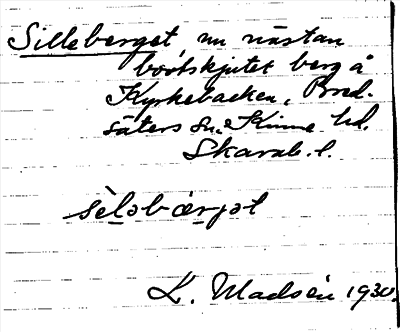 Silleberget nu nästan
bortskjutet berg å
Kyrkebacken, Bred-
säters sn. Kinne hd.
Skarab. l.
sèləbærjət
L. Madsén 1930.